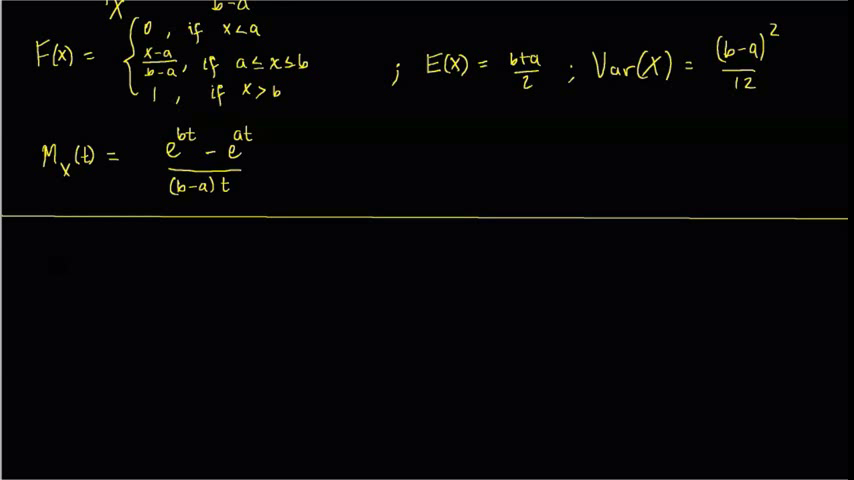 X b-a
F(x) = { 0 , if x<a
x-a/b-a , if a≤x≤b ; E(X) = b+a/2 ; Var(X) = (b-a)²/12
1 , if x>b
M_X(t) = e^{bt} - e^{at} / (b-a)t